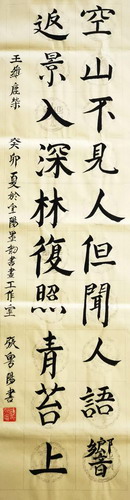 空山不見人但聞人語響
返景入深林復照青苔上
王維鹿柴 癸卯夏於宜陽墨韵書畫工作室 張曹陽書